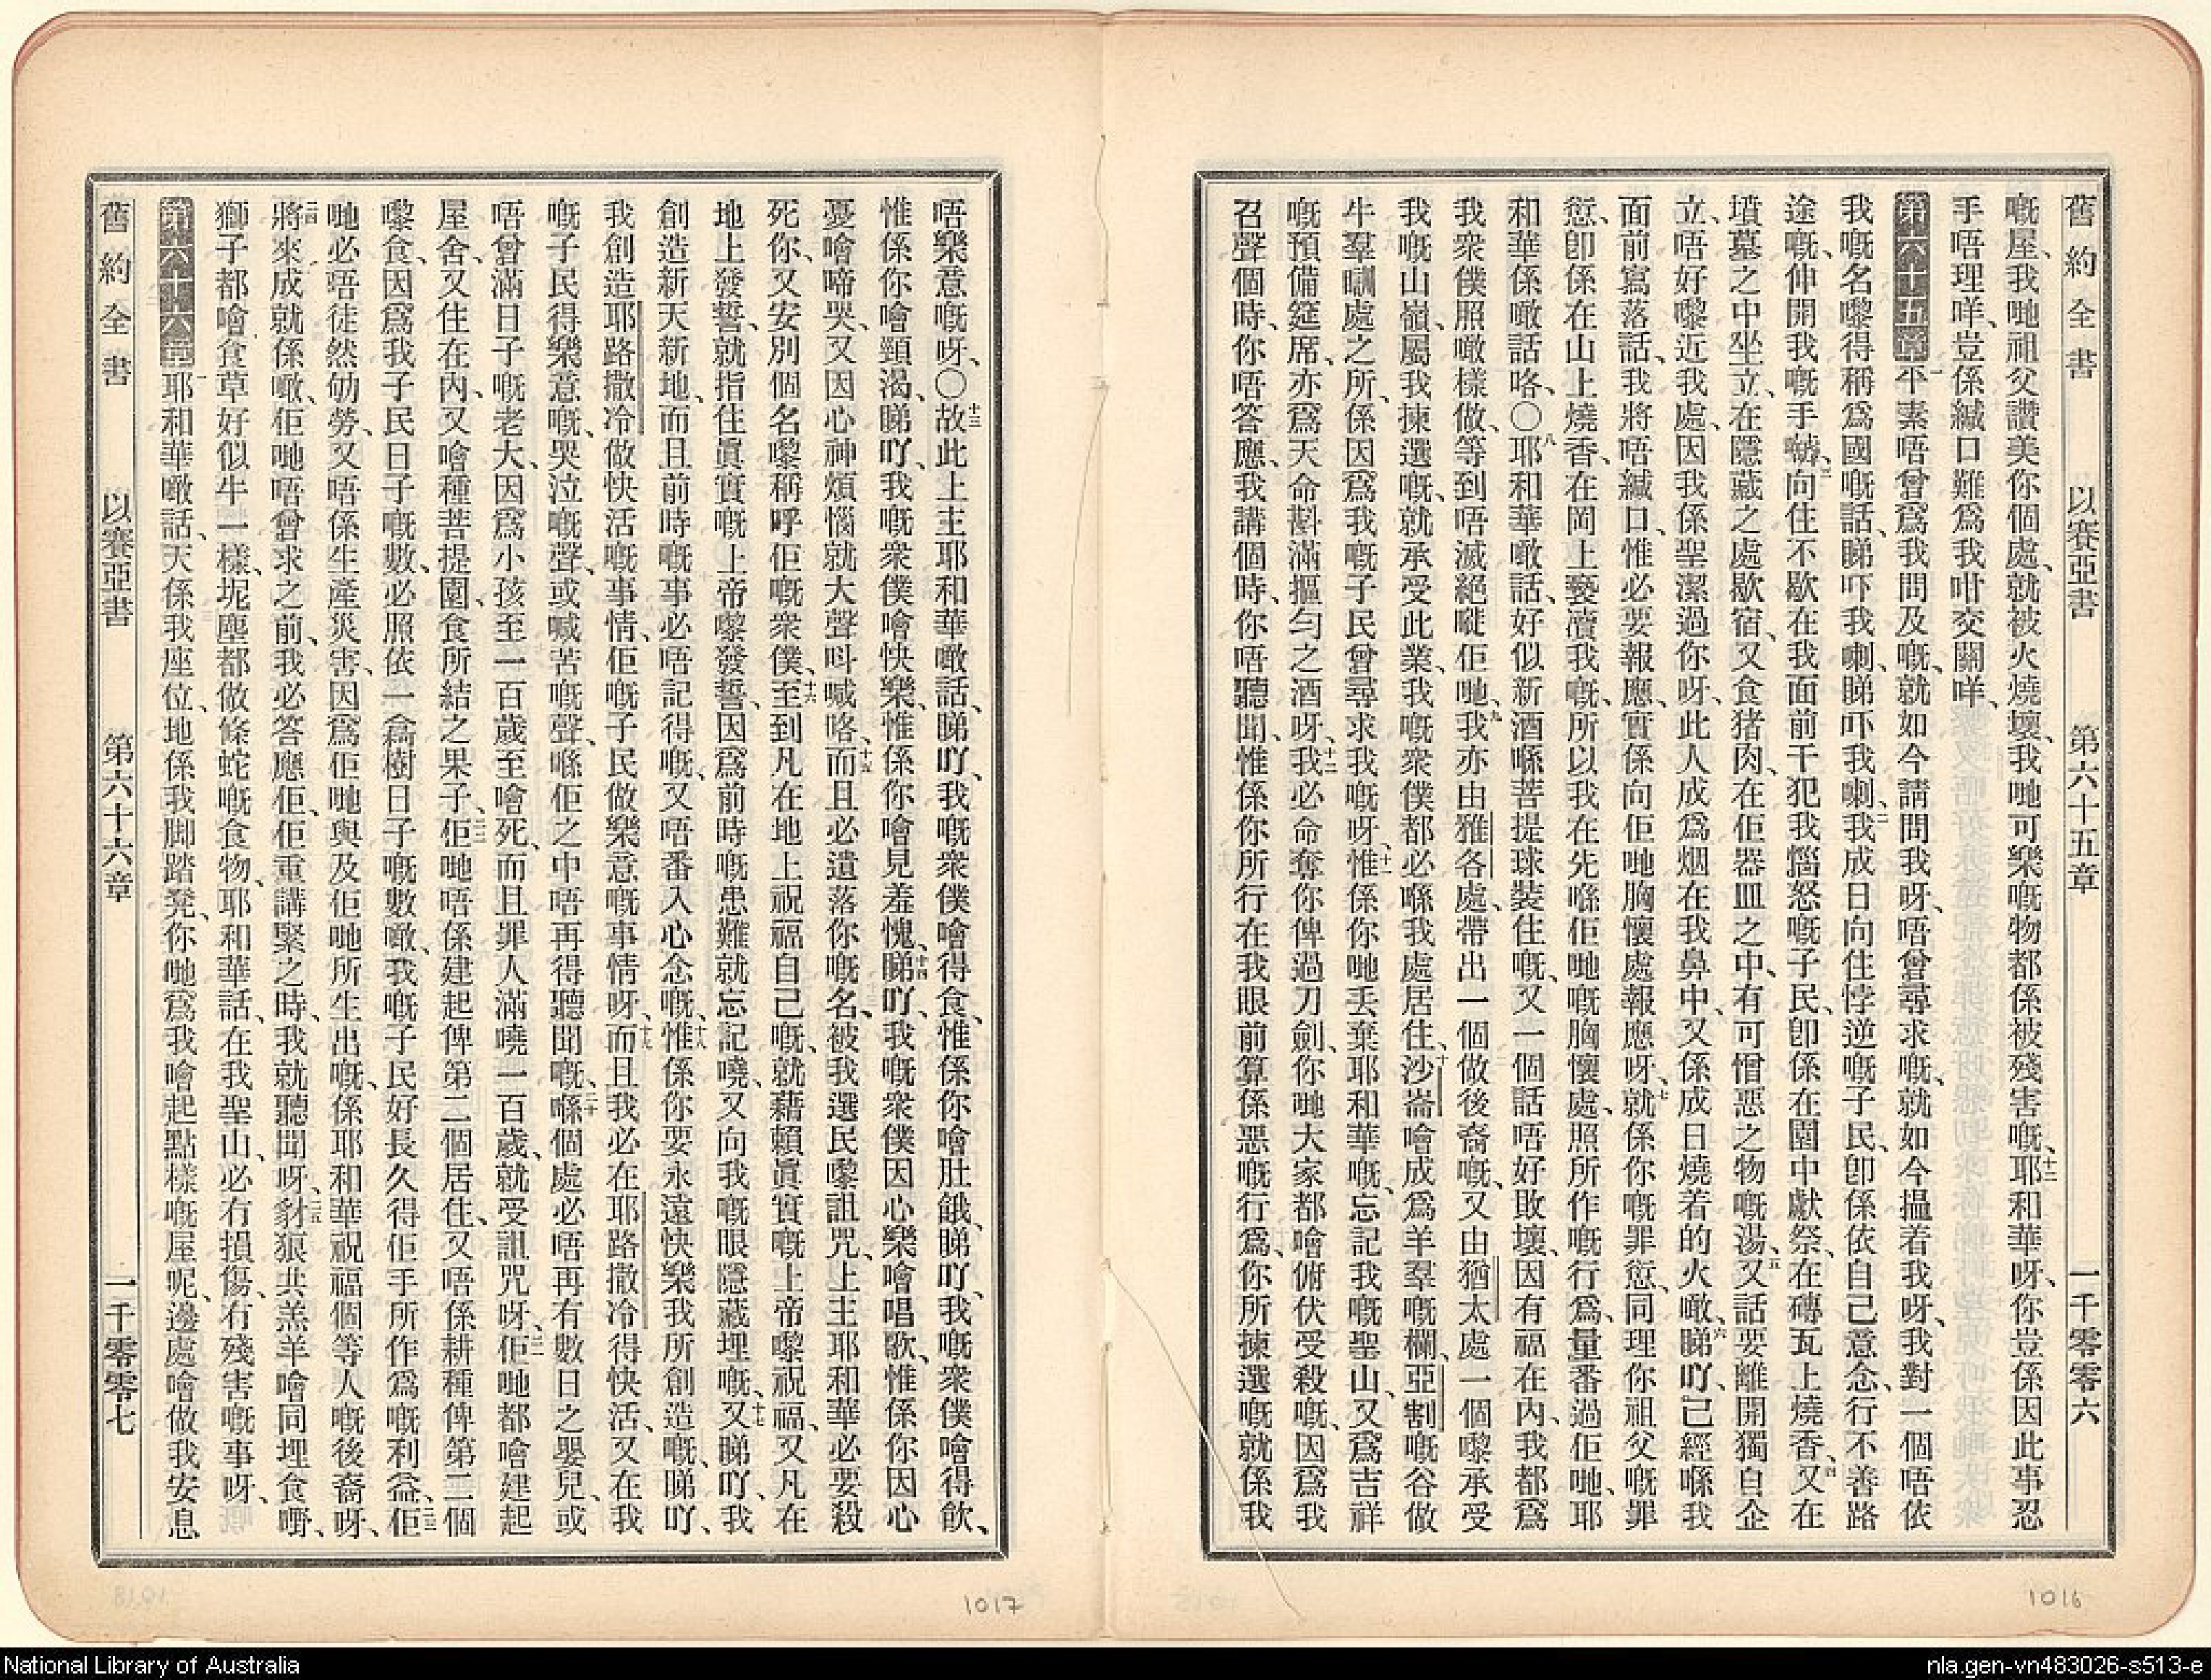 舊約全書　以賽亞書　第六十五章　一千零零六
嘅屋、我哋祖父讚美你個處、就被火燒壞、我哋可樂嘅物都係被殘害嘅、十二耶和華呀、你豈係因此事忍
手唔理咩、豈係緘口難爲我咁交關咩、
第六十五章一平素唔曾爲我問及嘅、就如今請問我呀、唔曾尋求嘅、就如今揾着我呀、我對一個唔依
我嘅名嚟得稱爲國嘅話、睇吓我喇、睇吓我喇、二我成日向住悖逆嘅子民、卽係依自己意念、行不善路
途嘅、伸開我嘅手、三向住不歇在我面前干犯我惱怒嘅子民、卽係在園中獻祭、在磚瓦上燒香、四又在
墳墓之中坐立、在隱藏之處歇宿、又食猪肉、在佢器皿之中、有可憎惡之物嘅湯、五又話要離開獨自企
立、唔好嚟近我處、因我係聖潔過你呀、此人成爲烟在我鼻中、又係成日燒着的火噉、六睇吖、已經喺我
面前寫落話、我將唔緘口、惟必要報應、實係向佢哋胸懷處報應呀、七就係你嘅罪愆、同理你祖父嘅罪
愆、卽係在山上燒香、在岡上褻瀆我嘅、所以我在先喺佢哋嘅胸懷處、照所作嘅行爲、量番過佢哋、耶
和華係噉話咯、〇八耶和華噉話、好似新酒喺菩提球裝住嘅、又一個話唔好敗壞、因有福在内、我都爲
我衆僕照噉樣做、等到唔滅絕嘥佢哋、九我亦由雅各處、帶出一個做後裔嘅、又由猶太處一個嚟承受
我嘅山嶺、屬我揀選嘅、就承受此業、我嘅衆僕都必喺我處居住、十沙崙噲成爲羊羣嘅欄、亞割嘅谷做
牛羣瞓處之所、係因爲我嘅子民曾尋求我嘅呀、十一惟係你哋丢棄耶和華嘅、忘記我嘅聖山、又爲吉祥
嘅預備筵席、亦爲天命斟滿摳勻之酒呀、十二我必命奪你俾過刀劍、你哋大家都噲俯伏受殺嘅、因爲我
召聲個時、你唔答應、我講個時、你唔聽聞、惟係你所行在我眼前算係惡嘅行爲、你所揀選嘅就係我
1016
唔樂意嘅呀、〇十三故此上主耶和華噉話、睇吖、我嘅衆僕噲得食、惟係你噲肚餓、睇吖、我嘅衆僕噲得飲、
惟係你噲頸渴、睇吖、我嘅衆僕噲快樂、惟係你噲見羞愧、十四睇吖、我嘅衆僕因心樂噲唱歌、惟係你因心
憂噲啼哭、又因心神煩惱就大聲呌喊咯、十五而且必遺落你嘅名、被我選民嚟詛咒、上主耶和華必要殺
死你、又安別個名嚟稱呼佢嘅衆僕、十六至到凡在地上祝福自己嘅、就藉賴眞實嘅上帝嚟祝福、又凡在
地上發誓、就指住眞實嘅上帝嚟發誓、因爲前時嘅患難就忘記嘵、又向我嘅眼隱藏埋嘅、十七又睇吖、我
創造新天新地、而且前時嘅事必唔記得嘅、又唔番入心念嘅、十八惟係你要永遠快樂我所創造嘅、睇吖、
我創造耶路撒冷做快活嘅事情、佢嘅子民做樂意嘅事情呀、十九而且我必在耶路撒冷得快活、又在我
嘅子民得樂意嘅、哭泣嘅聲、或喊苦嘅聲、喺佢之中唔再得聽聞嘅、二十喺個處必唔再有數日之嬰兒、或
唔曾滿日子嘅老大、因爲小孩至一百歲至噲死、而且罪人滿嘵一百歲、就受詛咒呀、二一佢哋都噲建起
屋舍、又住在内、又噲種菩提園、食所結之果子、二二佢哋唔係建起俾第二個居住、又唔係耕種俾第二個
嚟食、因爲我子民日子嘅數、必照依一喬樹日子嘅數噉、我嘅子民好長久得佢手所作爲嘅利益、二三佢
哋必唔徒然劬勞、又唔係生產災害、因爲佢哋與及佢哋所生出嘅、係耶和華祝福個等人嘅後裔呀、
二四將來成就係噉、佢哋唔曾求之前、我必答應佢、佢重講緊之時、我就聽聞呀、二五豺狼共羔羊噲同埋食嘢、
獅子都噲食草好似牛一樣、坭塵都做條蛇嘅食物、耶和華話、在我聖山、必冇損傷、冇殘害嘅事呀、
第六十六章一耶和華噉話、天係我座位、地係我脚踏凳、你哋爲我噲起點樣嘅屋呢、邊處噲做我安息
舊約全書　以賽亞書　第六十六章　一千零零七
1017
National Library of Australia
nla.gen-vn483026-s513-e